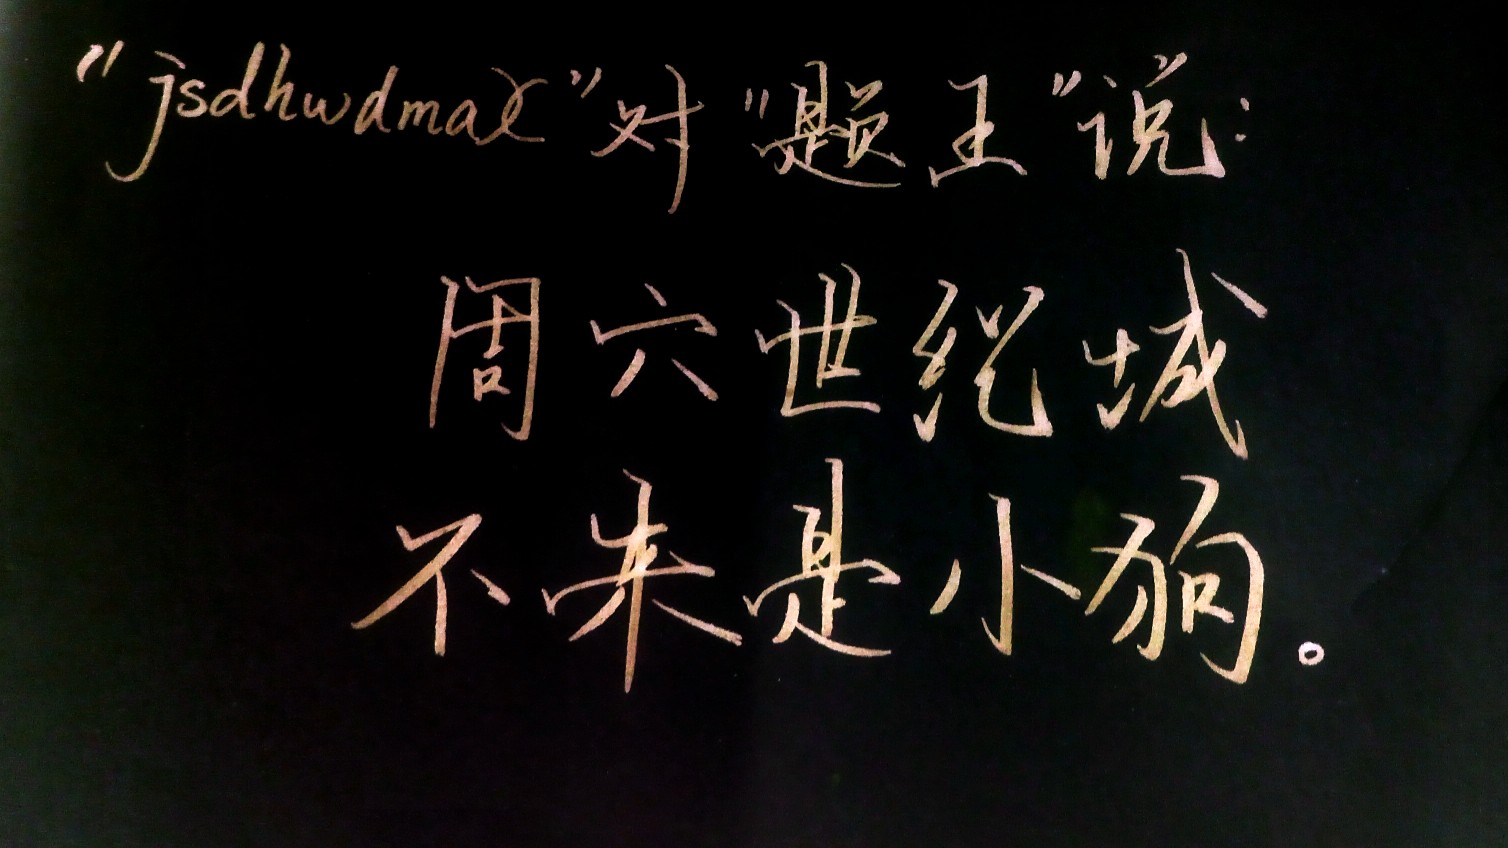 "jsdhwdmax"对"题王"说:
周六世纪城
不来是小狗。